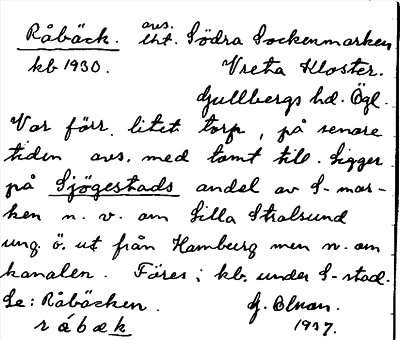 Råbäck. avs. lht. Södra Sockenmarken
kb 1930. Vreta Kloster.
Gullbergs hd. Ögl.
Var förr litet torp, på senare
tiden avs. med tomt till. Ligger
på Sjögestads andel av S-mar-
ken n. v. om Lilla Stralsund
ung. ö. ut från Hamburg men n. om
kanalen. Föres i kb. under S-stad.
Se: Råbäcken. G.
råbæk 1937.